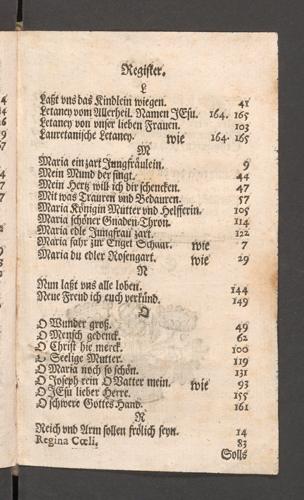 Register.
L
Laßt vns das Kindlein wiegen. 41
Letaney vom Allerheil. Namen JEsu. 164. 165
Letaney von vnser lieben Frauen. 103
Lauretanische Letaney. wie 164. 165
M
Maria ein zart Jungfräulein. 9
Mein Mund der singt. 44
Mein Hertz will ich dir schencken. 47
Mit was Trauren vnd Bedauren. 57
Maria Königin Mutter vnd Helfferin. 105
Maria schöner Gnaden-Thron. 114
Maria edle Jungfrau zart. 122
Maria fahr zur Engel Schaar. wie 7
Maria du edler Rosengart. wie 29
N
Nun laßt vns alle loben. 144
Neue Freud ich euch verkünd. 149
O
O Wunder groß. 49
O Mensch gedenck. 62
O Christ hie merck. 100
O Seelige Mutter. 119
O Maria noch so schön. 131
O Joseph rein O Vatter mein. wie 93
O JEsu lieber Herre. 155
O schwere Gottes Hand. 161
R
Reich vnd Arm sollen frölich seyn. 14
Regina Cœli. 83
Solls